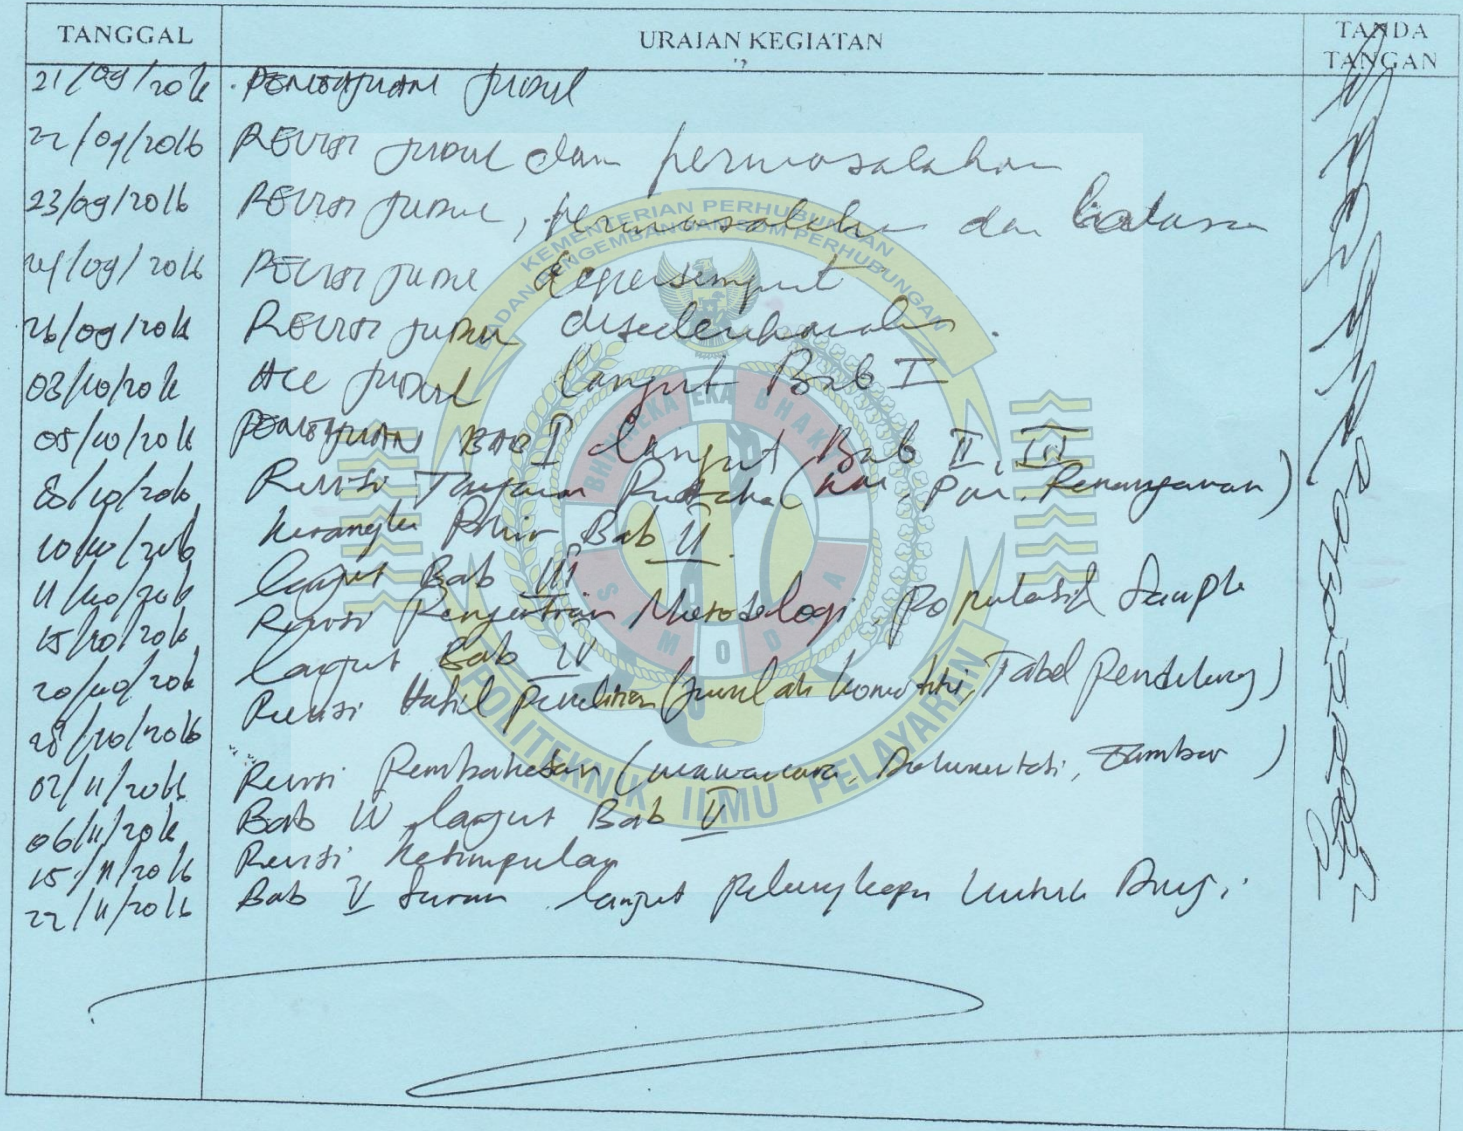 TANGGAL URAIAN KEGIATAN TANDA TANGAN
21/09/2016 PENGAJUAN JUDUL
22/09/2016 REVISI JUDUL dan permasalahan
23/09/2016 REVISI JUDUL, permasalahan dan batasan
24/09/2016 REVISI JUDUL dipersempit
26/09/2016 REVISI JUDUL disederhanakan.
03/10/2016 Acc JUDUL langut Bab I
05/10/2016 PENGAJUAN BAB I langut Bab II, III
Revisi Tinjauan Pustaka ( Penanganan)
10/10/2016 Kerangka Pikir Bab II
11/10/2016 langut Bab III
15/10/2016 Revisi Pengertian Metodologi, Populasi & Sample
20/10/2016 langut Bab IV
28/10/2016 Revisi Hasil Penelitian (Jumlah Tabel pendukung)
02/11/2016 Revisi Pembahasan (wawancara, Dokumentasi, Gambar)
06/11/2016 Bab IV langut Bab V
15/11/2016 Revisi Kesimpulan
22/11/2016 Bab V Saran langut untuk
KEMENTERIAN PERHUBUNGAN
BADAN PENGEMBANGAN SDM PERHUBUNGAN
BHINNEKA EKA BHAKTI
SAMODA
POLITEKNIK ILMU PELAYARAN